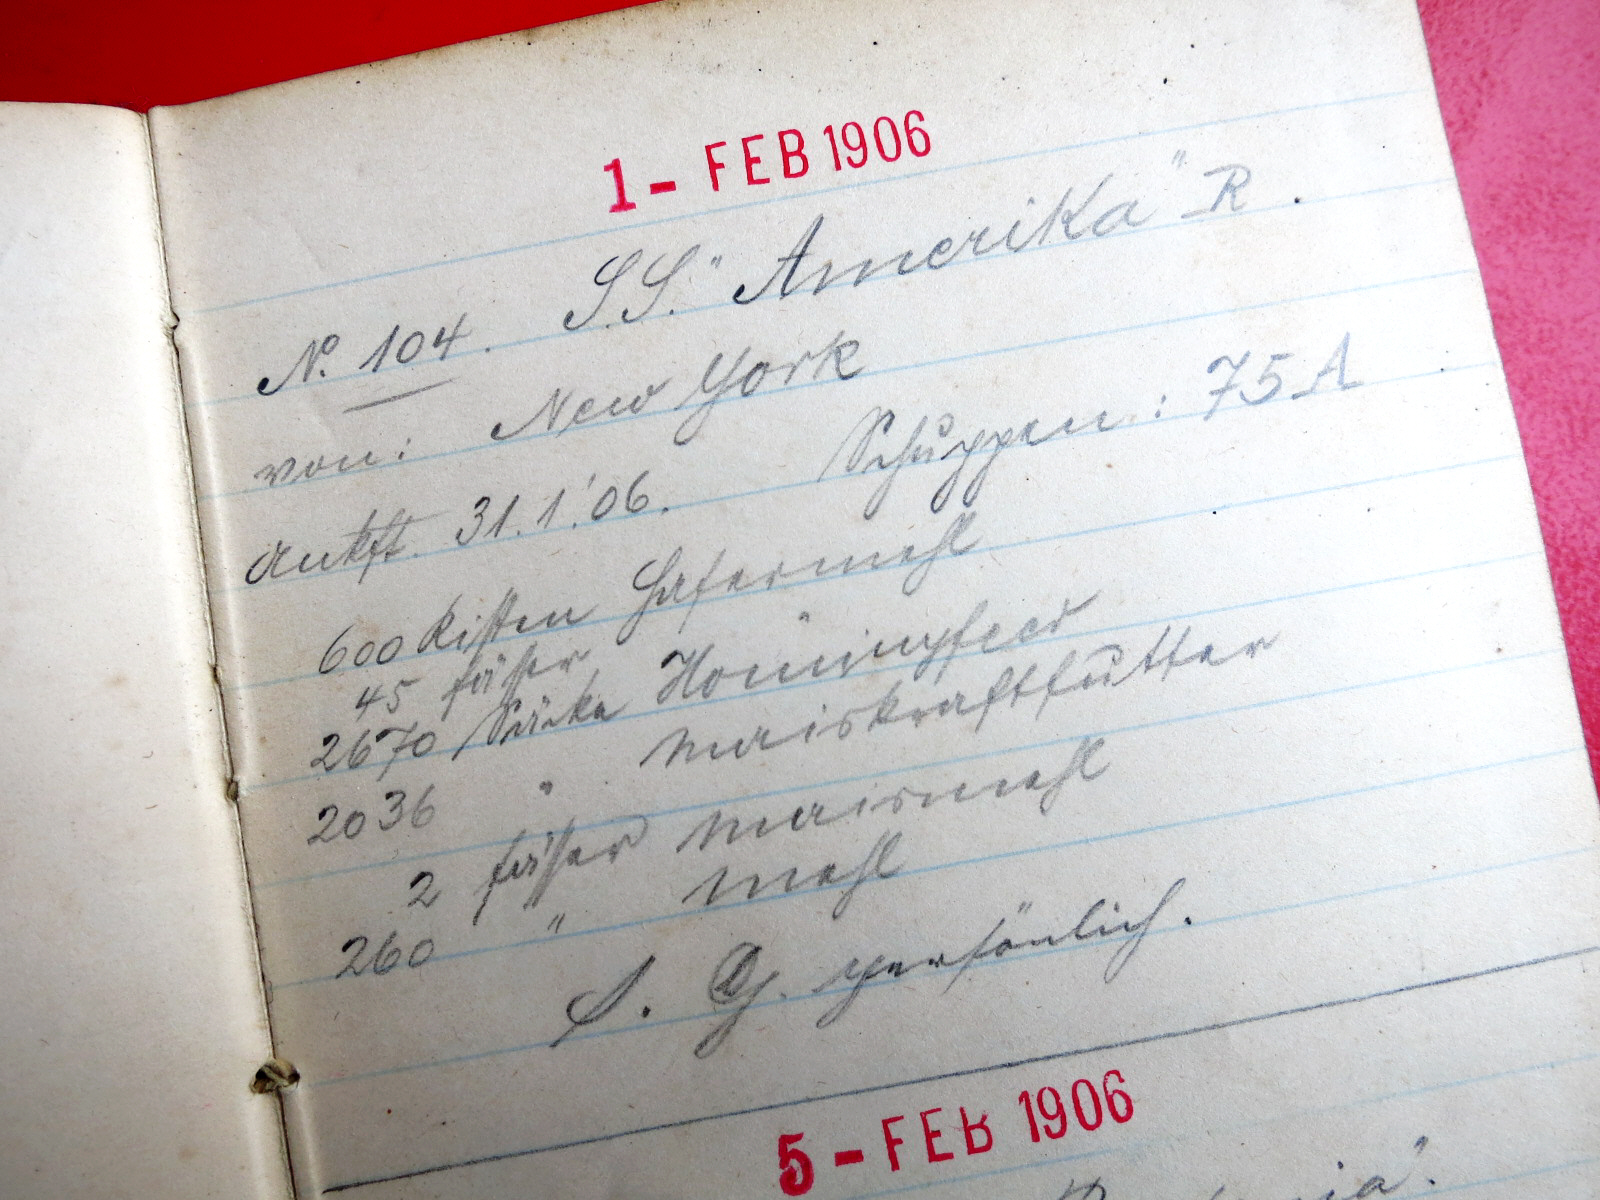 1 - FEB 1906
No. 104. S.S. "Amerika" R.
von: New York
Ankft. 31.1.'06. Schuppen: 75 A
600 Kisten Hafermehl
45 Fässer
2670 Säcke Hominyfeed
2036 " Maiskraftfutter
2 Fässer Maismehl
260 " Mehl
persönlich.
5 - FEB 1906